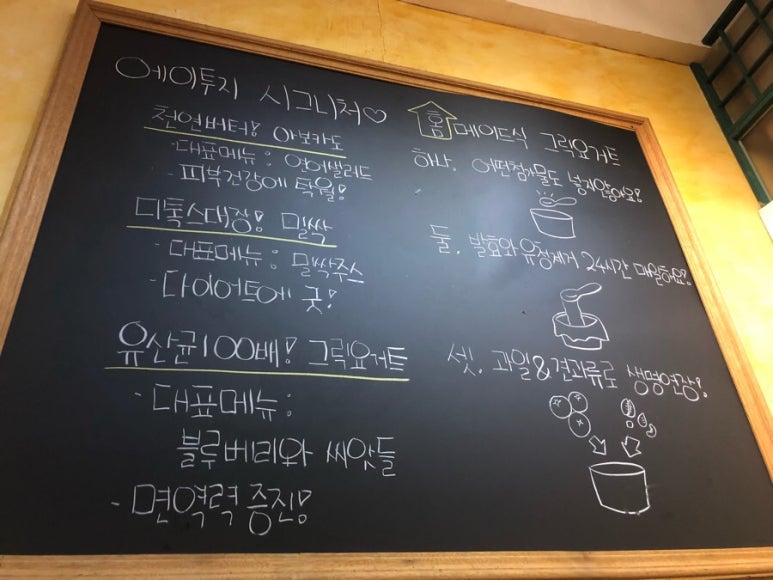 에이투지 시그니처♡
천연버터! 아보카도
· 대표메뉴 : 연어샐러드
· 피부건강에 탁월!
디톡스대장! 밀싹
· 대표메뉴 : 밀싹주스
· 다이어트에 굿!
유산균100배! 그릭요거트
· 대표메뉴 :
블루베리와 씨앗들
- 면역력 증진!
홈메이드식 그릭요거트
하나. 어떤첨가물도 넣지않아요!
둘. 발효와 유청제거 24시간 매일해요!
셋. 과일&견과류로 생명연장!